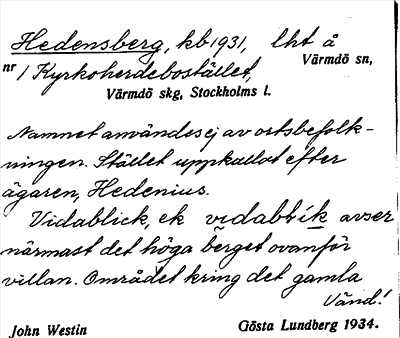 Hedensberg, kb 1931, lht å
Värmdö sn,
nr 1 Kyrkoherdebostället,
Värmdö skg, Stockholms l.
Namnet användes ej av ortsbefolk-
ningen. Stället uppkallat efter
ägaren, Hedenius.
Vidablick, ek vıdabtı̄k avser
närmast det höga berget ovanför
villan. Området kring det gamla
Vänd!
John Westin
Gösta Lundberg 1934.